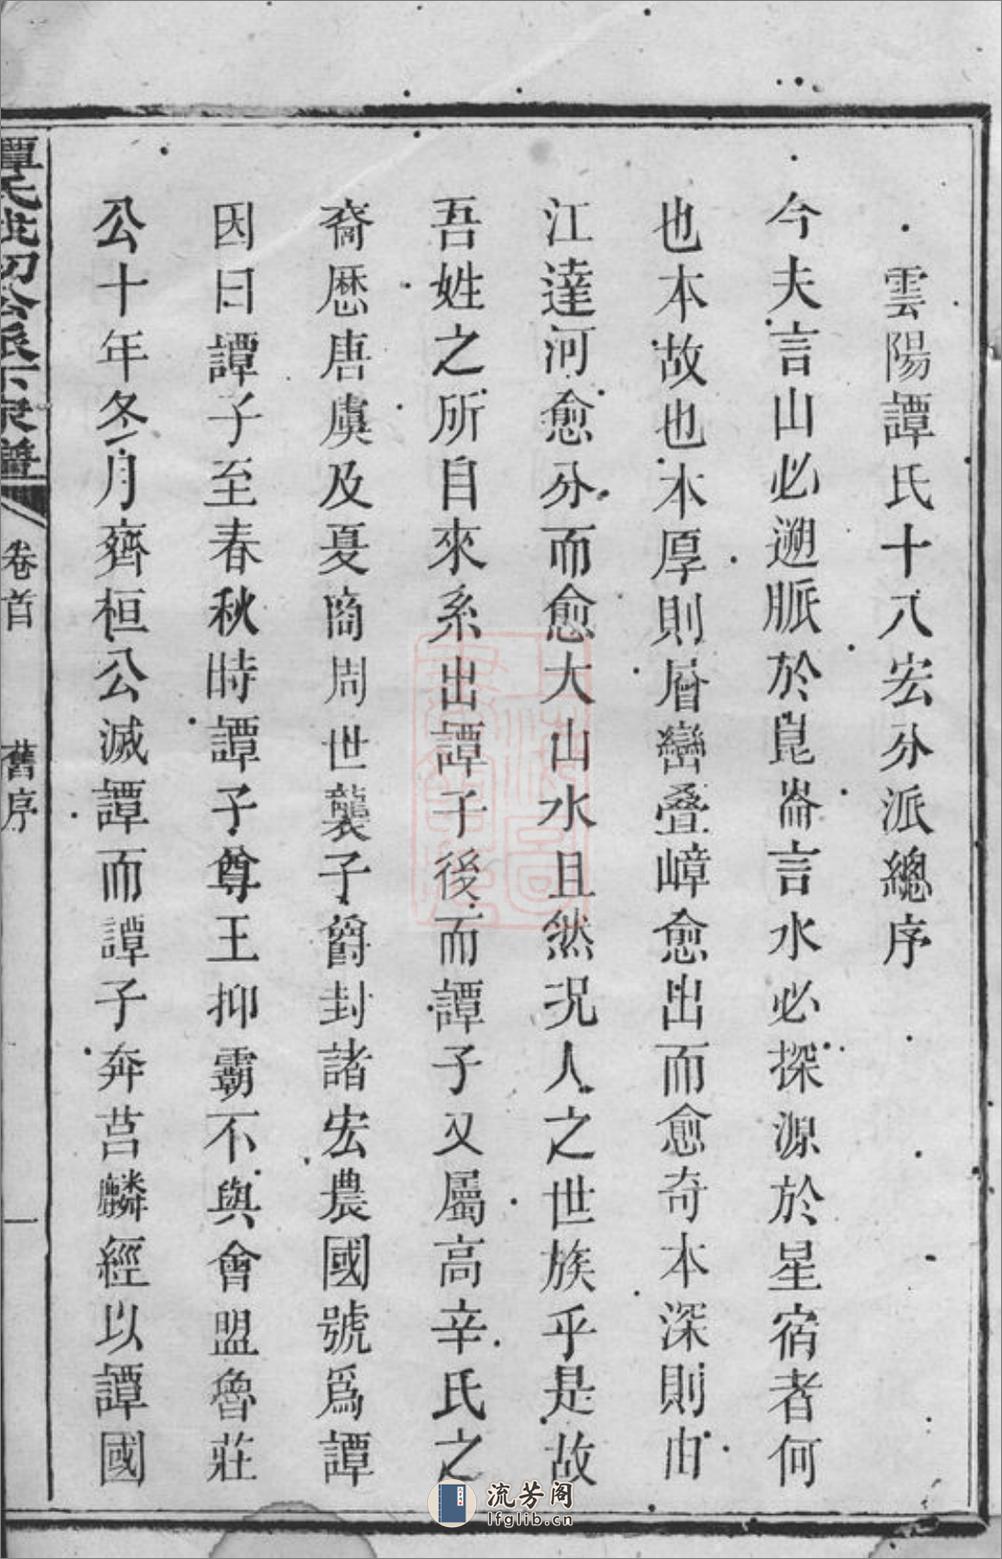 雲陽譚氏十八宏分派總序
今夫言山必遡脈於崑崙言水必探源於星宿者何
也本故也本厚則層巒叠嶂愈出而愈奇本深則由
江達河愈分而愈大山水且然況人之世族乎是故
吾姓之所自來系出譚子後而譚子又屬高辛氏之
裔歷唐虞及夏商周世襲子爵封諸宏農國號爲譚
因曰譚子至春秋時譚子尊王抑霸不與會盟魯莊
公十年冬十月齊桓公滅譚而譚子奔莒麟經以譚國
譚氏 公派下宗譜
卷首
舊序
一
流芳阁
lfglib.cn